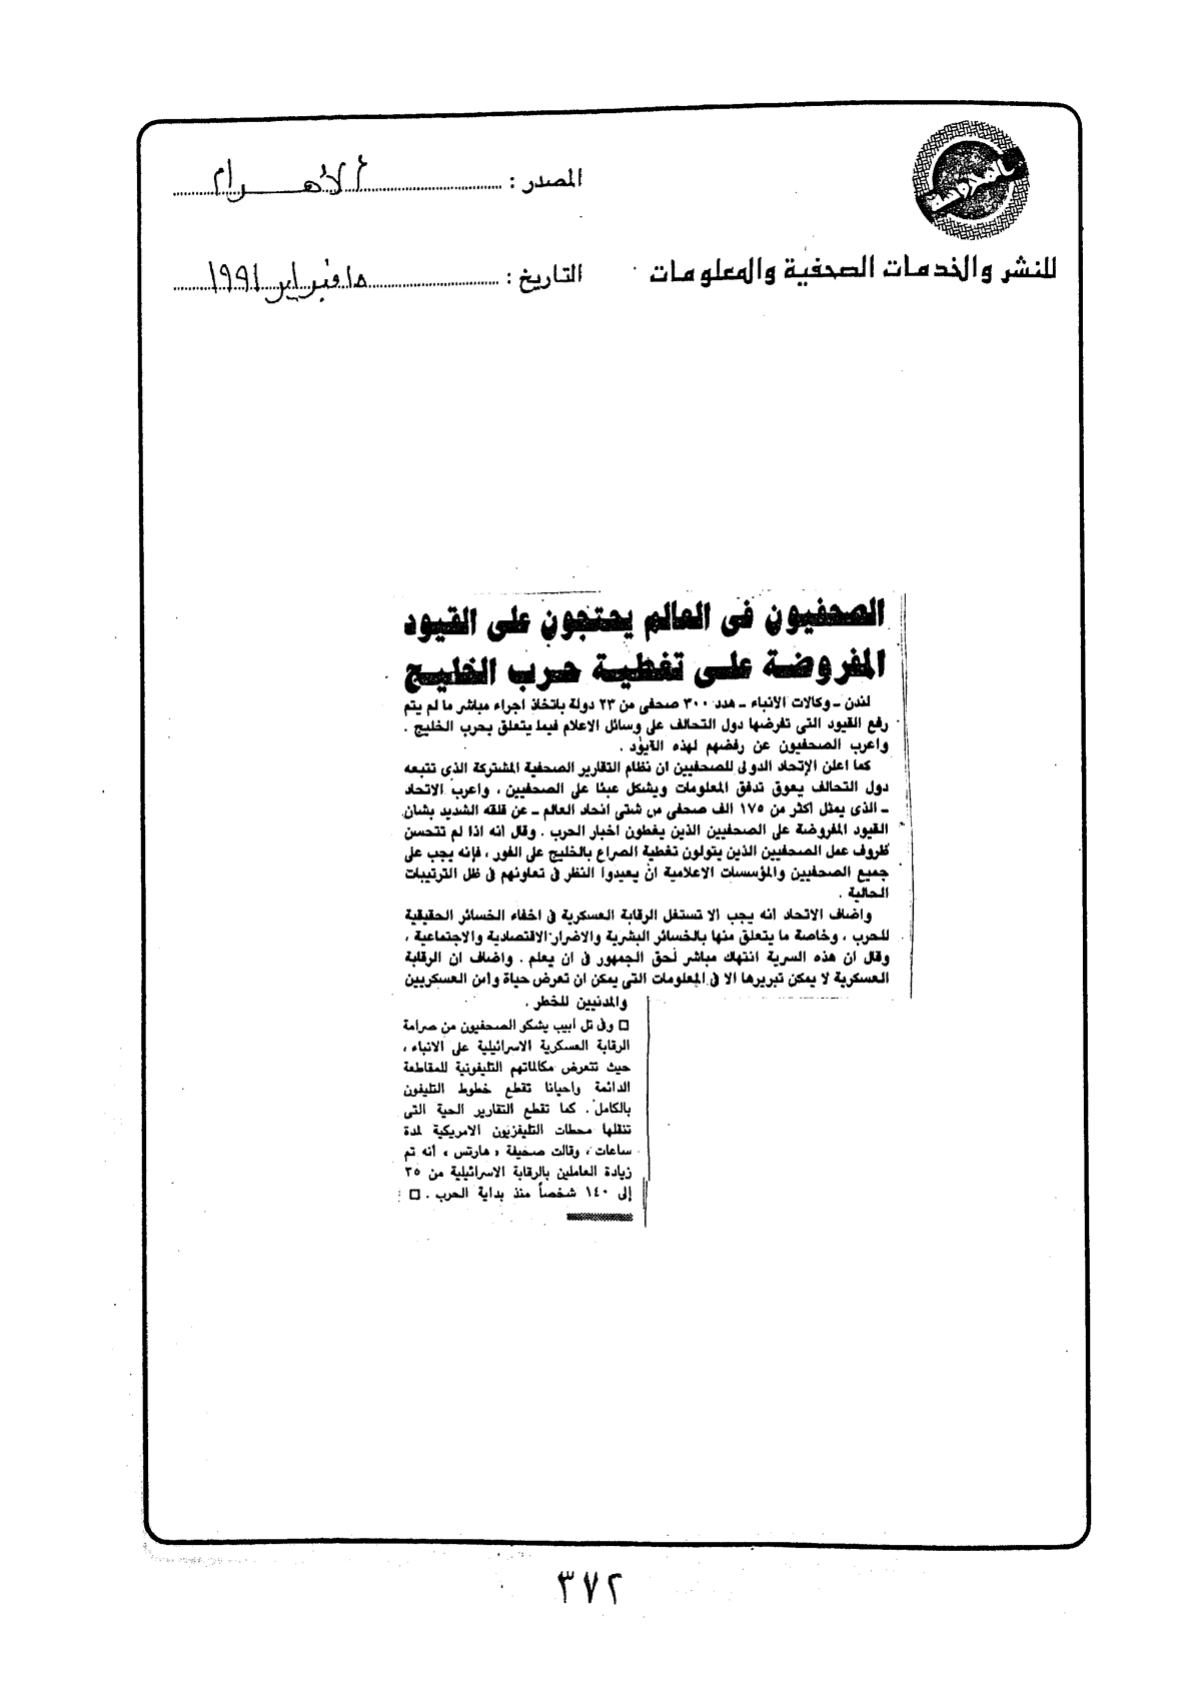 المصدر : الأهرام
للنشر والخدمات الصحفية والمعلومات
التاريخ : ١٥ فبراير ١٩٩١
الصحفيون فى العالم يحتجون على القيود
المفروضة على تغطية حرب الخليج
لندن ـ وكالات الانباء ـ هدد ٣٠٠ صحفى من ٢٣ دولة باتخاذ اجراء مباشر ما لم يتم
رفع القيود التى تفرضها دول التحالف على وسائل الاعلام فيما يتعلق بحرب الخليج .
واعرب الصحفيون عن رفضهم لهذه القيود .
كما اعلن الإتحاد الدولى للصحفيين ان نظام التقارير الصحفية المشتركة الذى تتبعه
دول التحالف يعوق تدفق المعلومات ويشكل عبئا على الصحفيين ، واعرب الاتحاد
ـ الذى يمثل اكثر من ١٧٥ الف صحفى من شتى انحاء العالم ـ عن قلقه الشديد بشان
القيود المفروضة على الصحفيين الذين يغطون اخبار الحرب . وقال انه اذا لم تتحسن
ظروف عمل الصحفيين الذين يتولون تغطية الصراع بالخليج على الفور ، فإنه يجب على
جميع الصحفيين والمؤسسات الاعلامية ان يعيدوا النظر فى تعاونهم فى ظل الترتيبات
الحالية .
واضاف الاتحاد انه يجب الا تستغل الرقابة العسكرية فى اخفاء الخسائر الحقيقية
للحرب ، وخاصة ما يتعلق منها بالخسائر البشرية والاضرار الاقتصادية والاجتماعية ،
وقال ان هذه السرية انتهاك مباشر لحق الجمهور فى ان يعلم . واضاف ان الرقابة
العسكرية لا يمكن تبريرها الا فى المعلومات التى يمكن ان تعرض حياة وامن العسكريين
والمدنيين للخطر .
□ وفى تل أبيب يشكو الصحفيون من صرامة
الرقابة العسكرية الاسرائيلية على الانباء ،
حيث تتعرض مكالماتهم التليفونية للمقاطعة
الدائمة واحيانا تقطع خطوط التليفون
بالكامل . كما تقطع التقارير الحية التى
تنقلها محطات التليفزيون الامريكية لمدة
ساعات ، وقالت صحيفة « هارتس » أنه تم
زيادة العاملين بالرقابة الاسرائيلية من ٣٥
إلى ١٤٠ شخصاً منذ بداية الحرب . □
٣٧٢